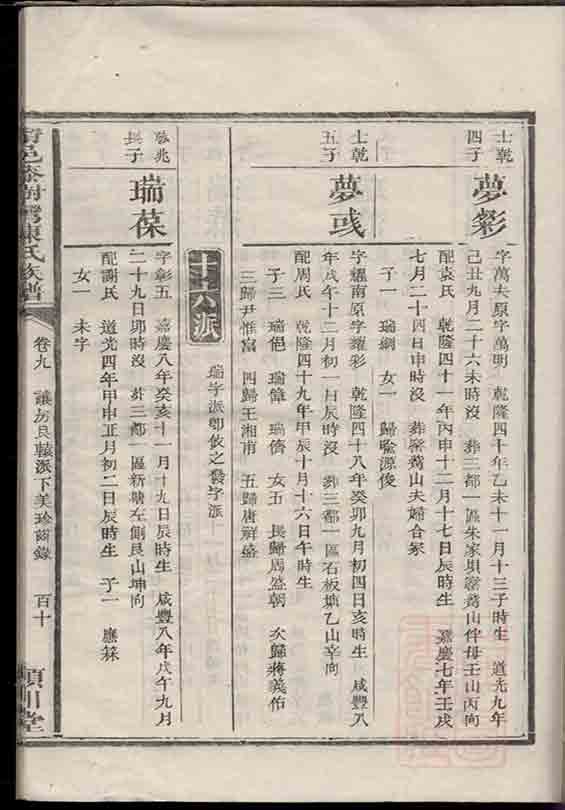 士乾四子
夢彩
字萬夫原字萬明 乾隆四十年乙未十一月十三子時生 道光九年
己丑九月二十六未時沒 葬三都一區朱家坝 山伴母壬山丙向
配袁氏 乾隆四十一年丙申十二月十七日辰時生 嘉慶七年壬戌
七月二十四日申時沒 葬 山夫婦合冢
子一 瑞綱 女一 歸 源俊
士乾五子
夢彧
字耀南原字耀彩 乾隆四十八年癸卯九月初四日亥時生 咸豐八
年戊午十二月初一日辰時沒 葬三都一區石板塘乙山辛向
配周氏 乾隆四十九年甲辰十月十六日午時生
子三 瑞俋 瑞偉 瑞儕 女五 長歸周盛朝 次歸蔣義佑
三歸尹惟富 四歸王湘甫 五歸唐祥盛
十六派
瑞字派卽依之 字派
兆長子
瑞葆
字彰五 嘉慶八年癸亥十一月十九日辰時生 咸豐八年戊午九月
二十九日卯時沒 葬三都一區新塘左側艮山坤向
配謝氏 道光四年甲申正月初二日辰時生 子一 應霖
女一 未字
陳氏族譜
卷九 讓房良轅派下美珍齒錄 百十
潁川堂